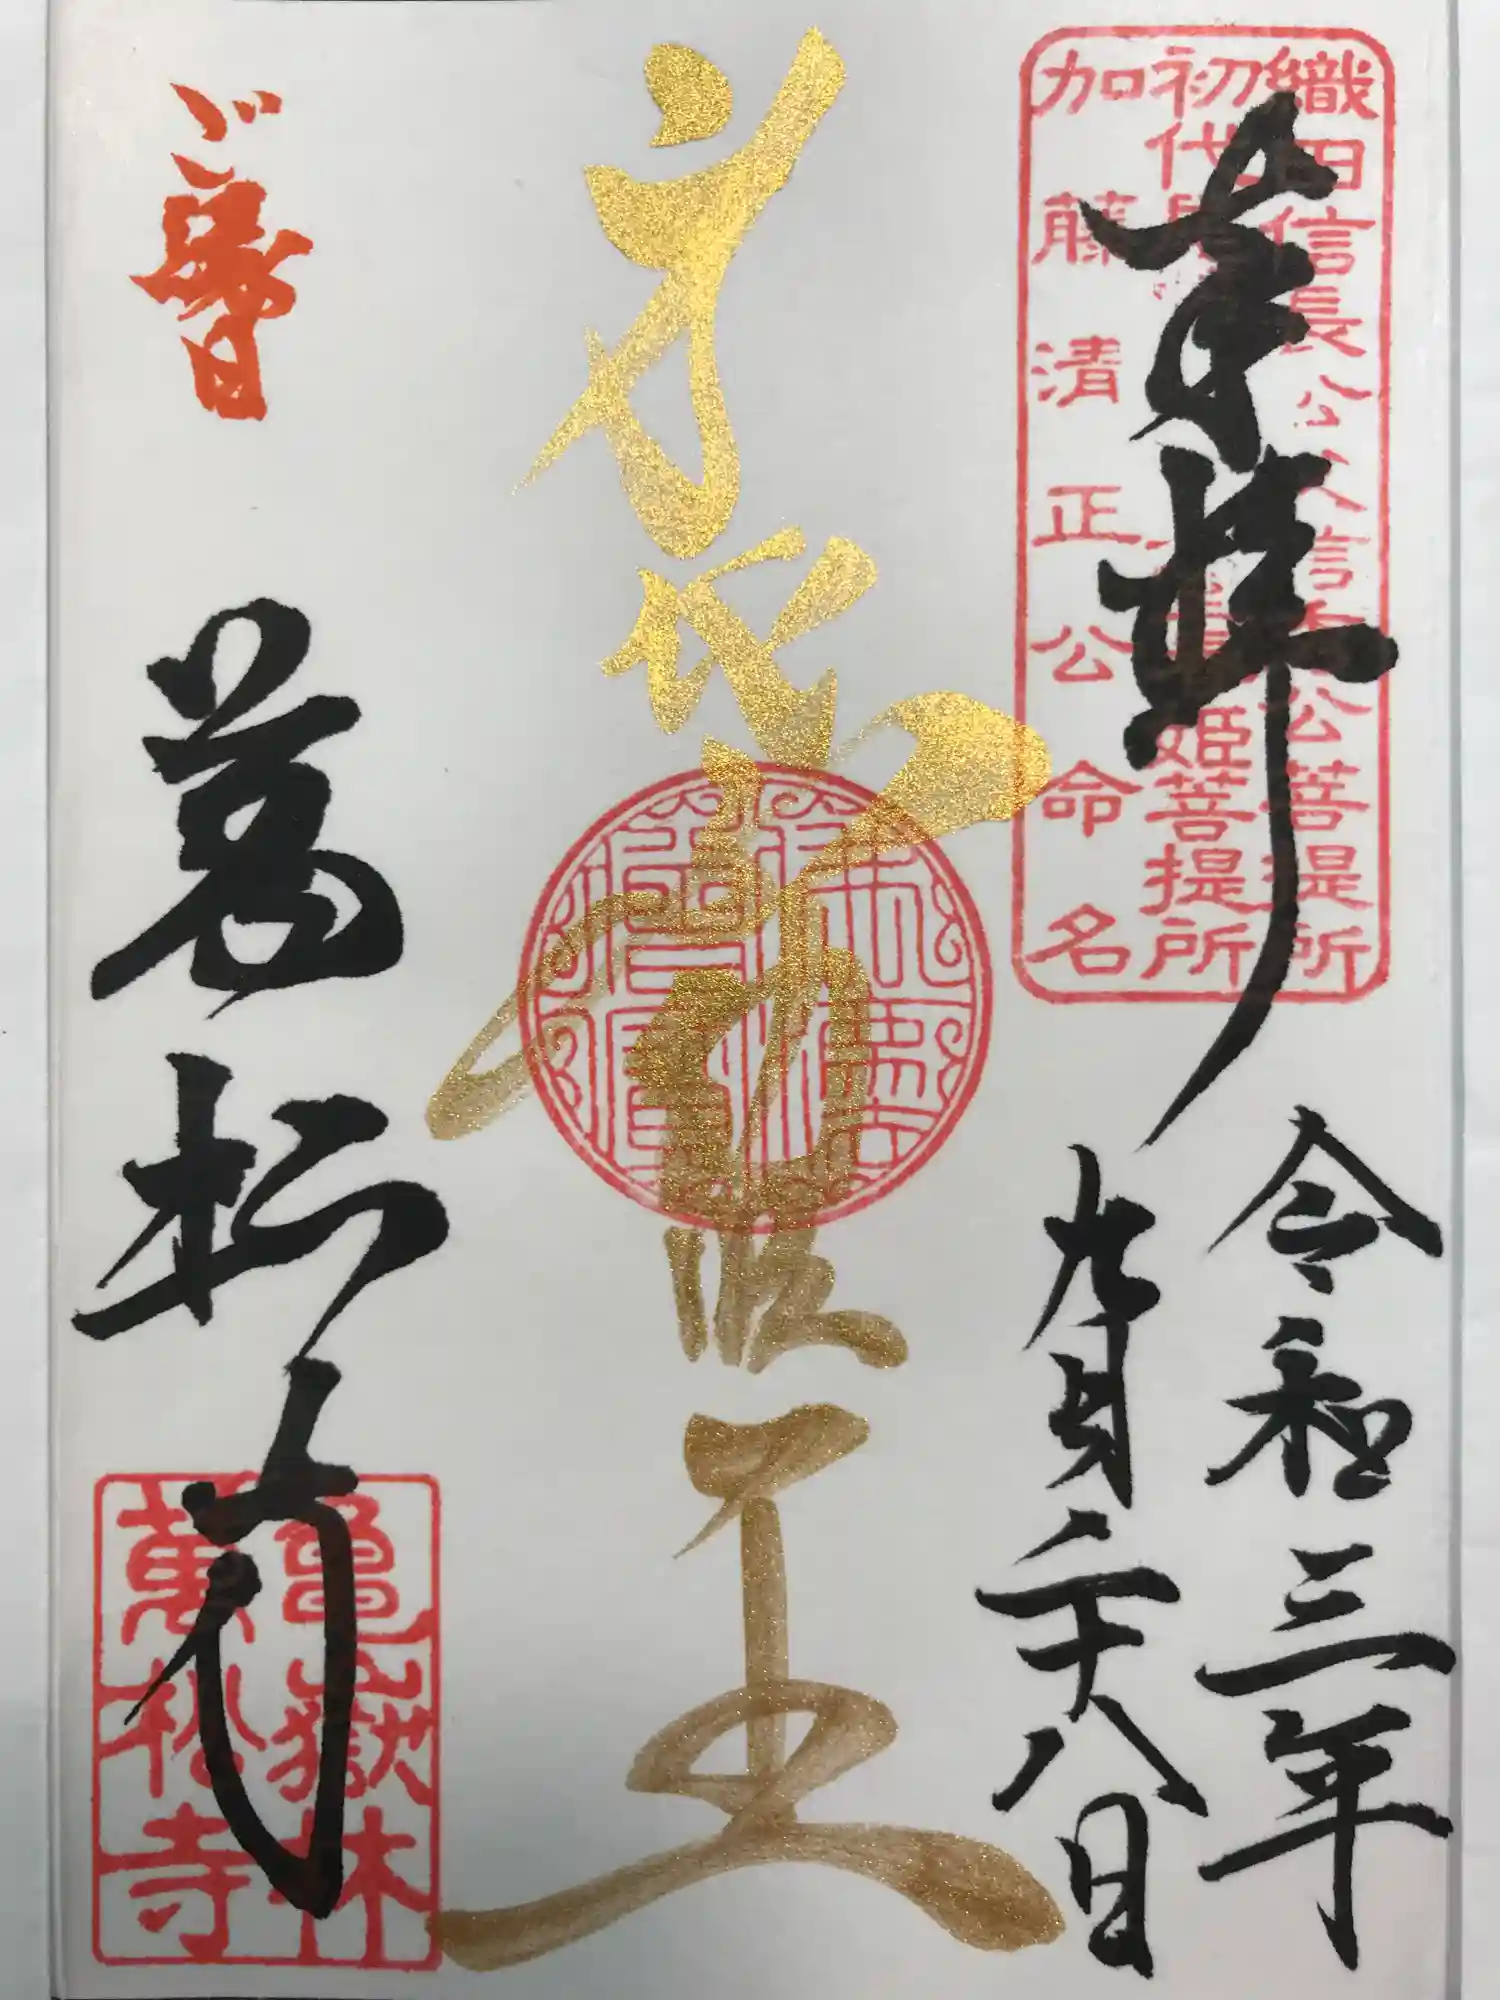 織田信長公父信秀公菩提所
初代 姫菩提所
加藤清正公命名
奉拝
令和三年
九月二十八日
身代不動明王
ご縁日
萬松寺
亀嶽林
萬松寺